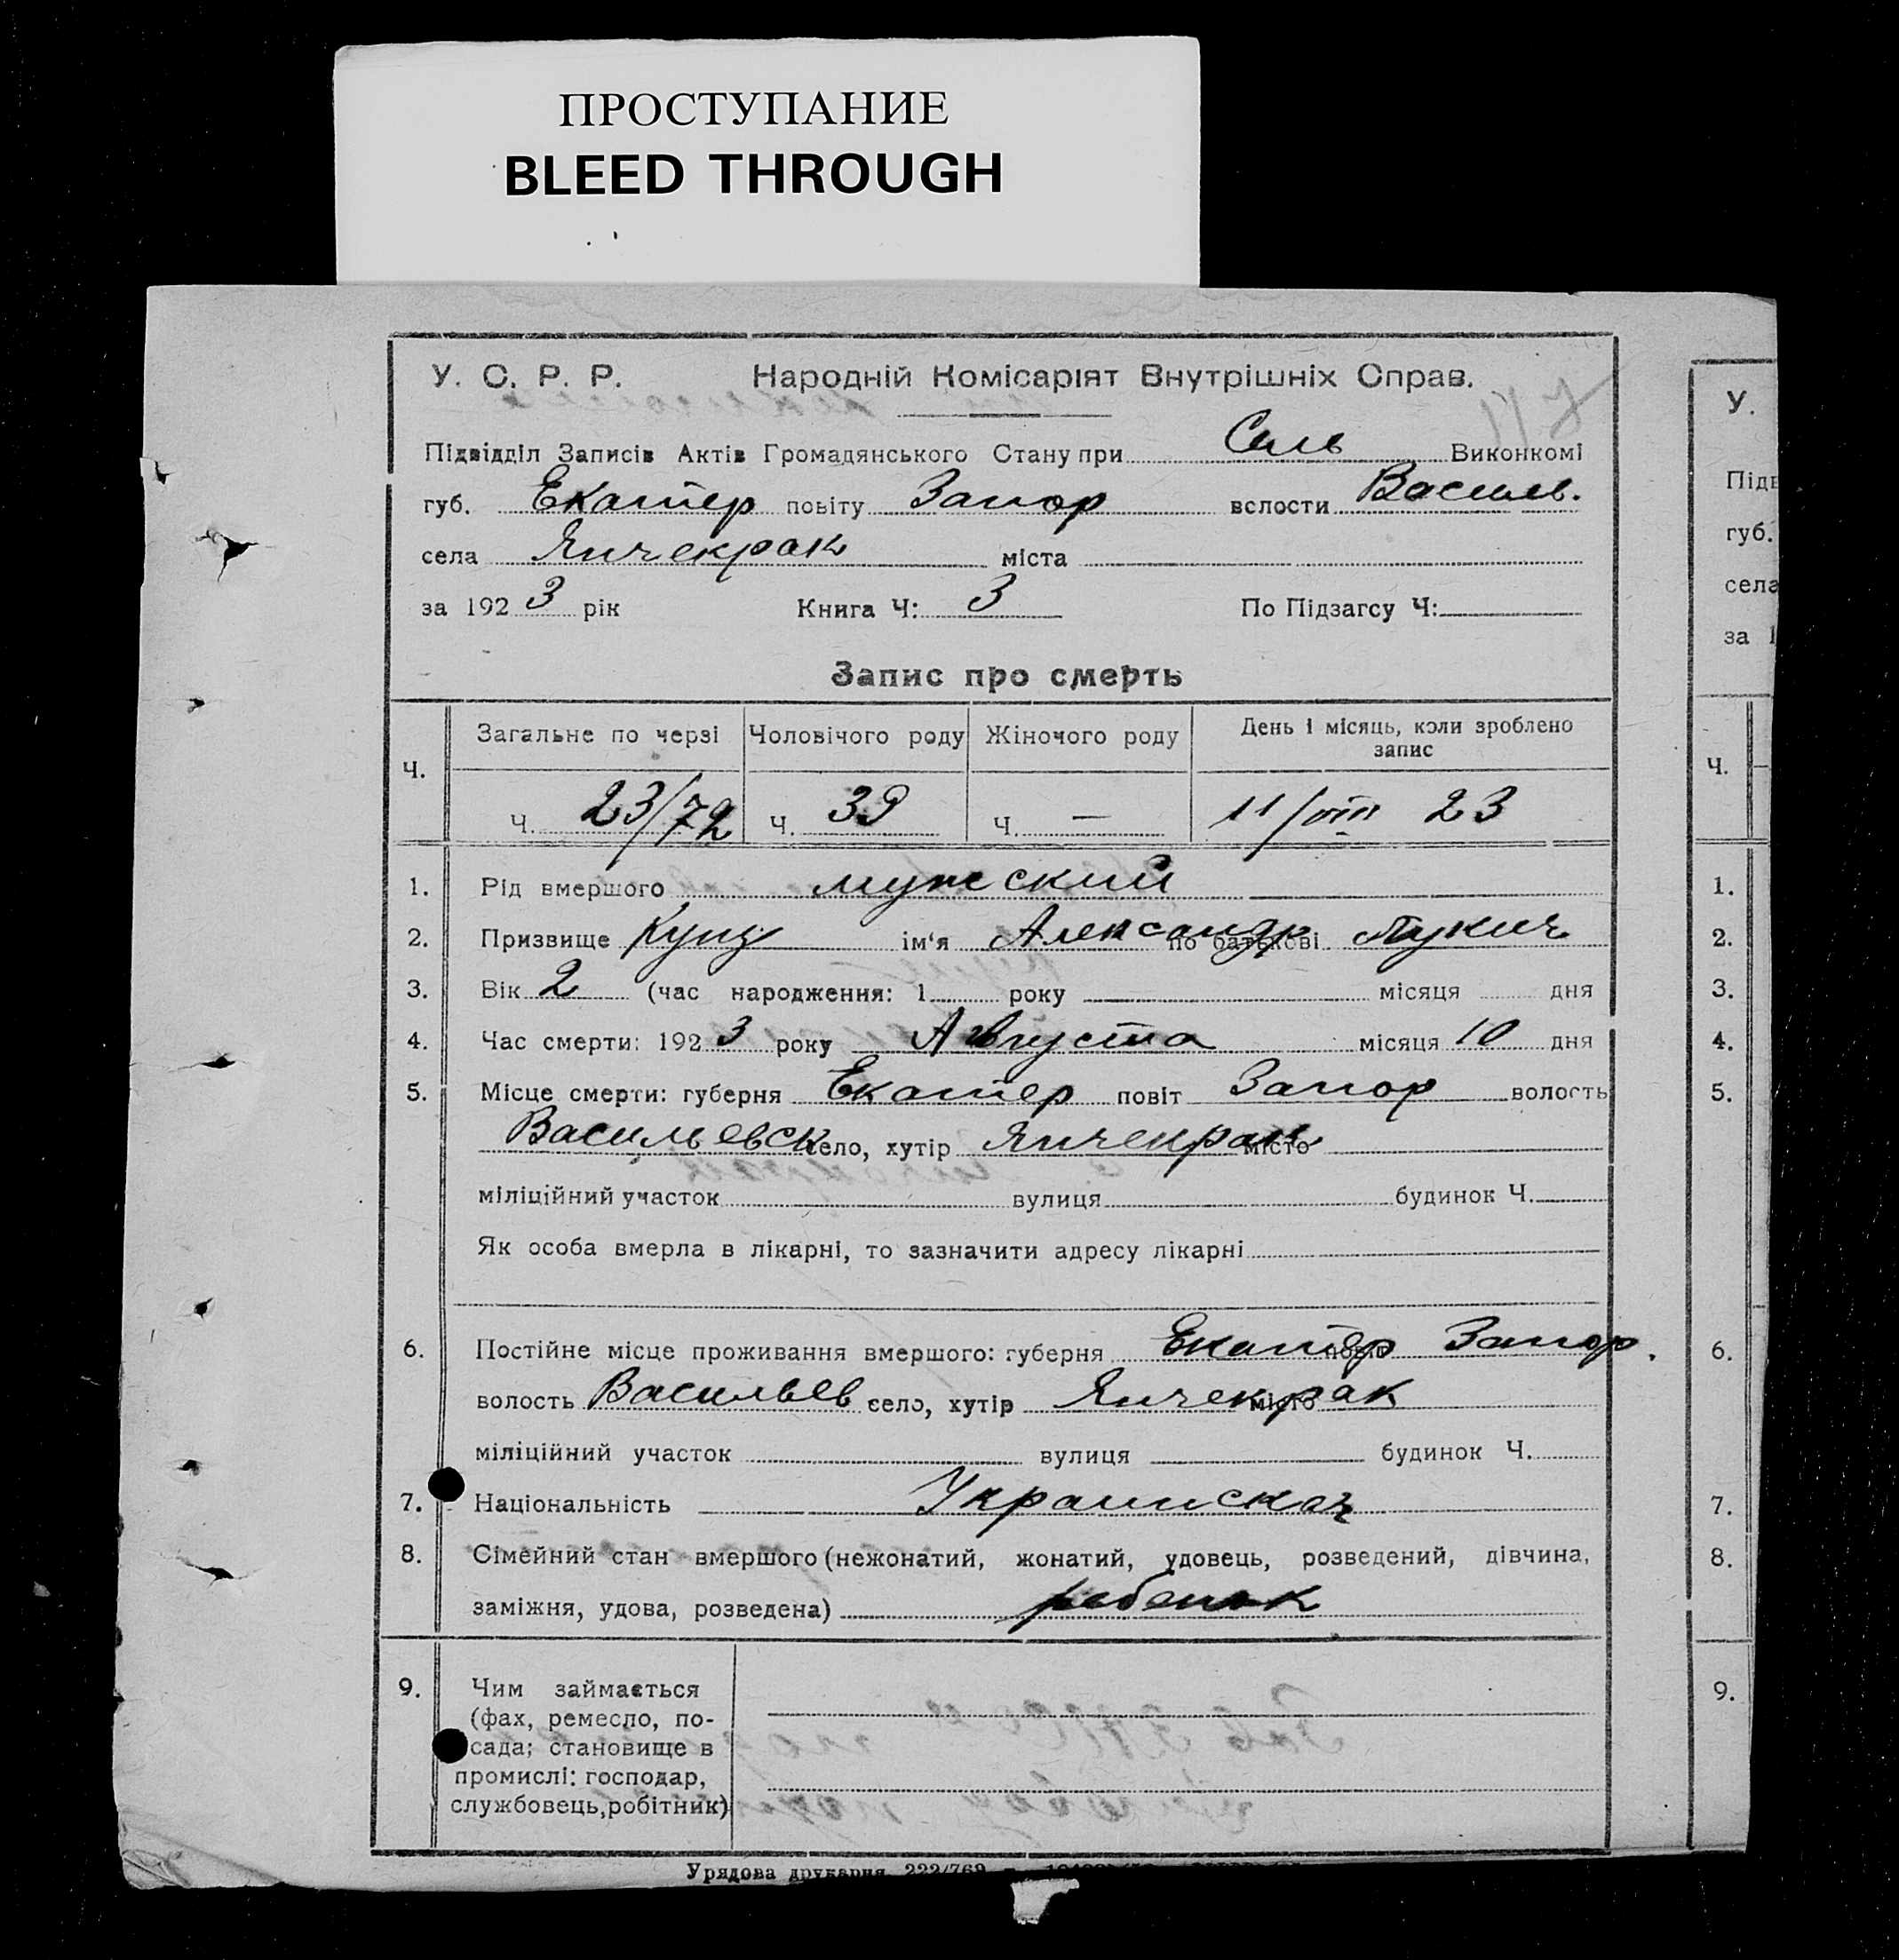 ПРОСТУПАНИЕ
BLEED THROUGH
У. С. Р. Р. Народній Комісаріят Внутрішніх Справ.
У.
Підвідділ Записів Актів Громадянського Стану при Сель Виконкомі
губ. Екатер повіту Запор волости Василь.
губ.
села Янчекрак міста
села
за 1923 рік Книга Ч: 3 По Підзагсу Ч:
за 1
Запис про смерть
Ч. Загальне по черзі Чоловічого роду Жіночого роду День і місяць, коли зроблено запис
Ч.
Ч. 23/72 Ч. 39 Ч. — 11/VIII 23
1. Рід вмершого мужский
1.
2. Призвище Кунц ім'я Александр по батькові Лукич
2.
3. Вік 2 (час народження: 1 року місяця дня
3.
4. Час смерти: 1923 року Августа місяця 10 дня
4.
5. Місце смерти: губерня Екатер повіт Запор волость
5.
Васильевск село, хутір Янчекрак місто
міліційний участок вулиця будинок Ч.
Як особа вмерла в лікарні, то зазначити адресу лікарні
6. Постійне місце проживання вмершого: губерня Екатер повіт Запор.
6.
волость Васильев село, хутір Янчекрак місто
міліційний участок вулиця будинок Ч.
7. Національність Украинская
7.
8. Сімейний стан вмершого (нежонатий, жонатий, удовець, розведений, дівчина,
8.
заміжня, удова, розведена) ребенок
9. Чим займається
9.
(фах, ремесло, по-
сада; становище в
промислі: господар,
службовець, робітник)
Урядова друкарня 222/769